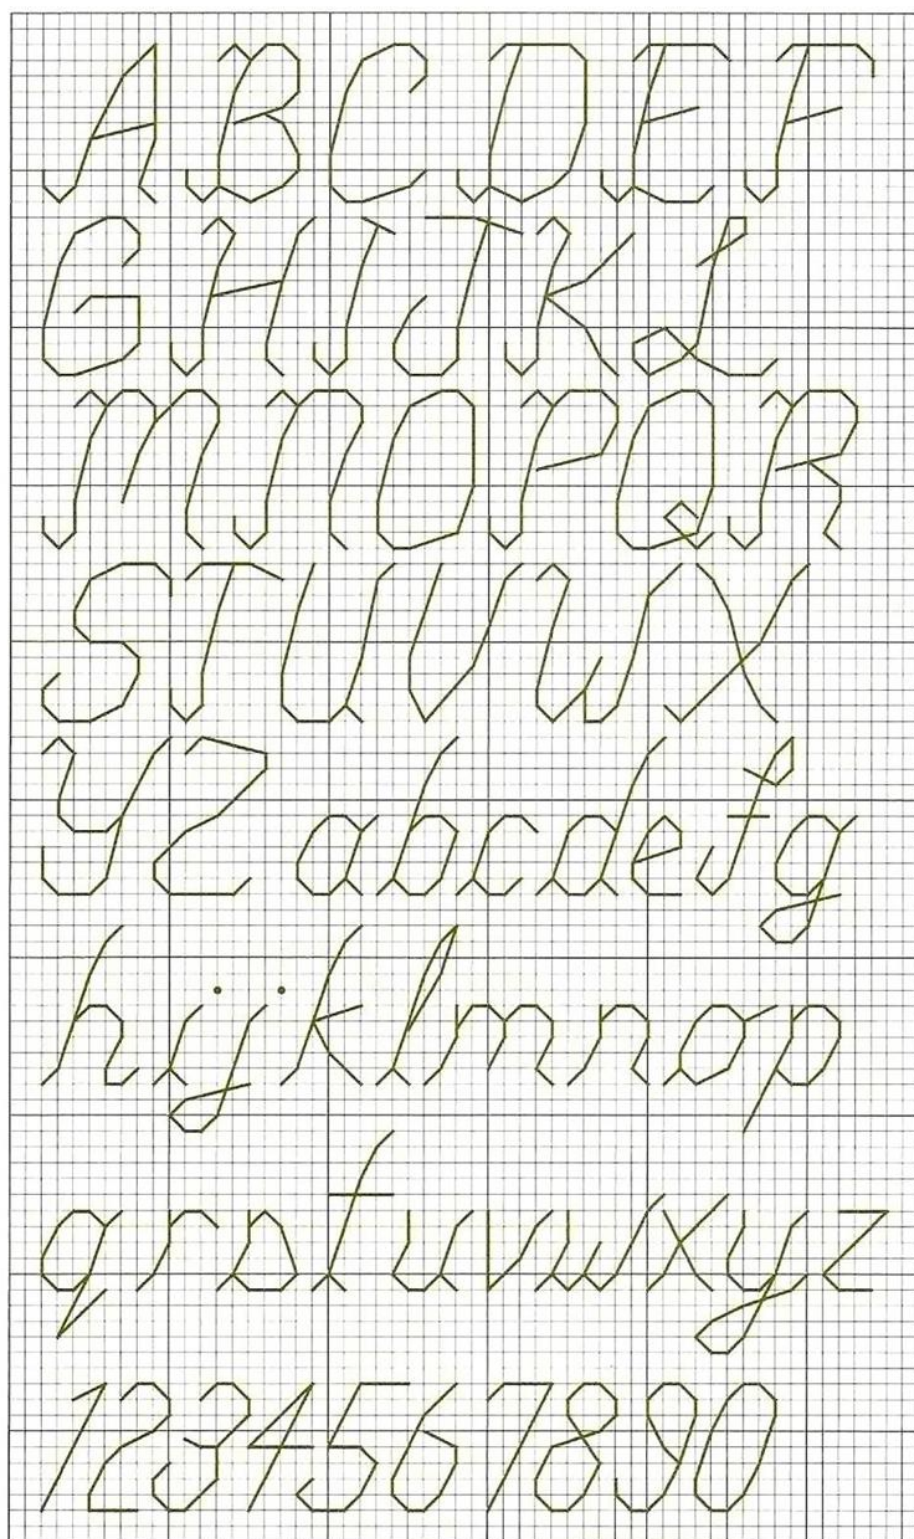 A B C D E F
G H I J K L
M N O P Q R
S T U V W X
Y Z a b c d e f g
h i j k l m n o p
q r s t u v w x y z
1 2 3 4 5 6 7 8 9 0